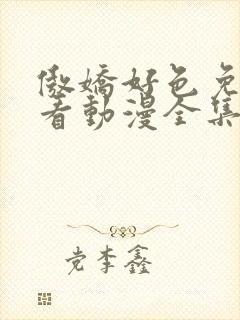 傲嬌好色免
看動漫全集
党李鑫